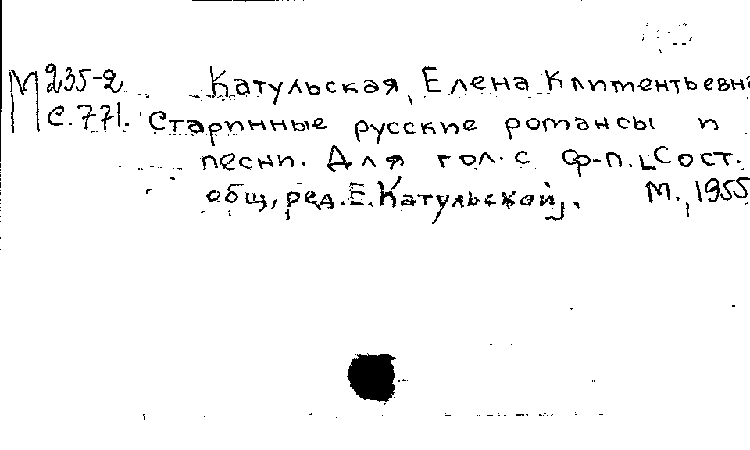 М 235-2 Катульская, Елена Климентьевна
С.771. Старинные русские романсы и
песни. Для гол. с ф-п. [Сост.
общ, ред. Е. Катульской]. М., 1955